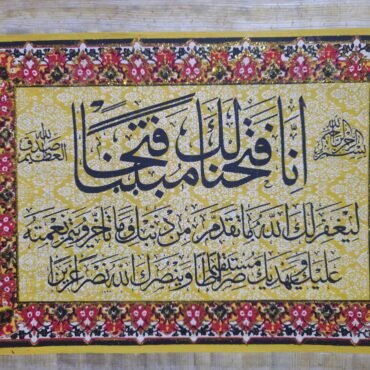 بسم الله الرحمن الرحيم
إنا فتحنا لك فتحا مبينا
ليغفر لك الله ما تقدم من ذنبك وما تأخر ويتم نعمته
عليك ويهديك صراطا مستقيما وينصرك الله نصرا عزيزا
صدق الله العظيم